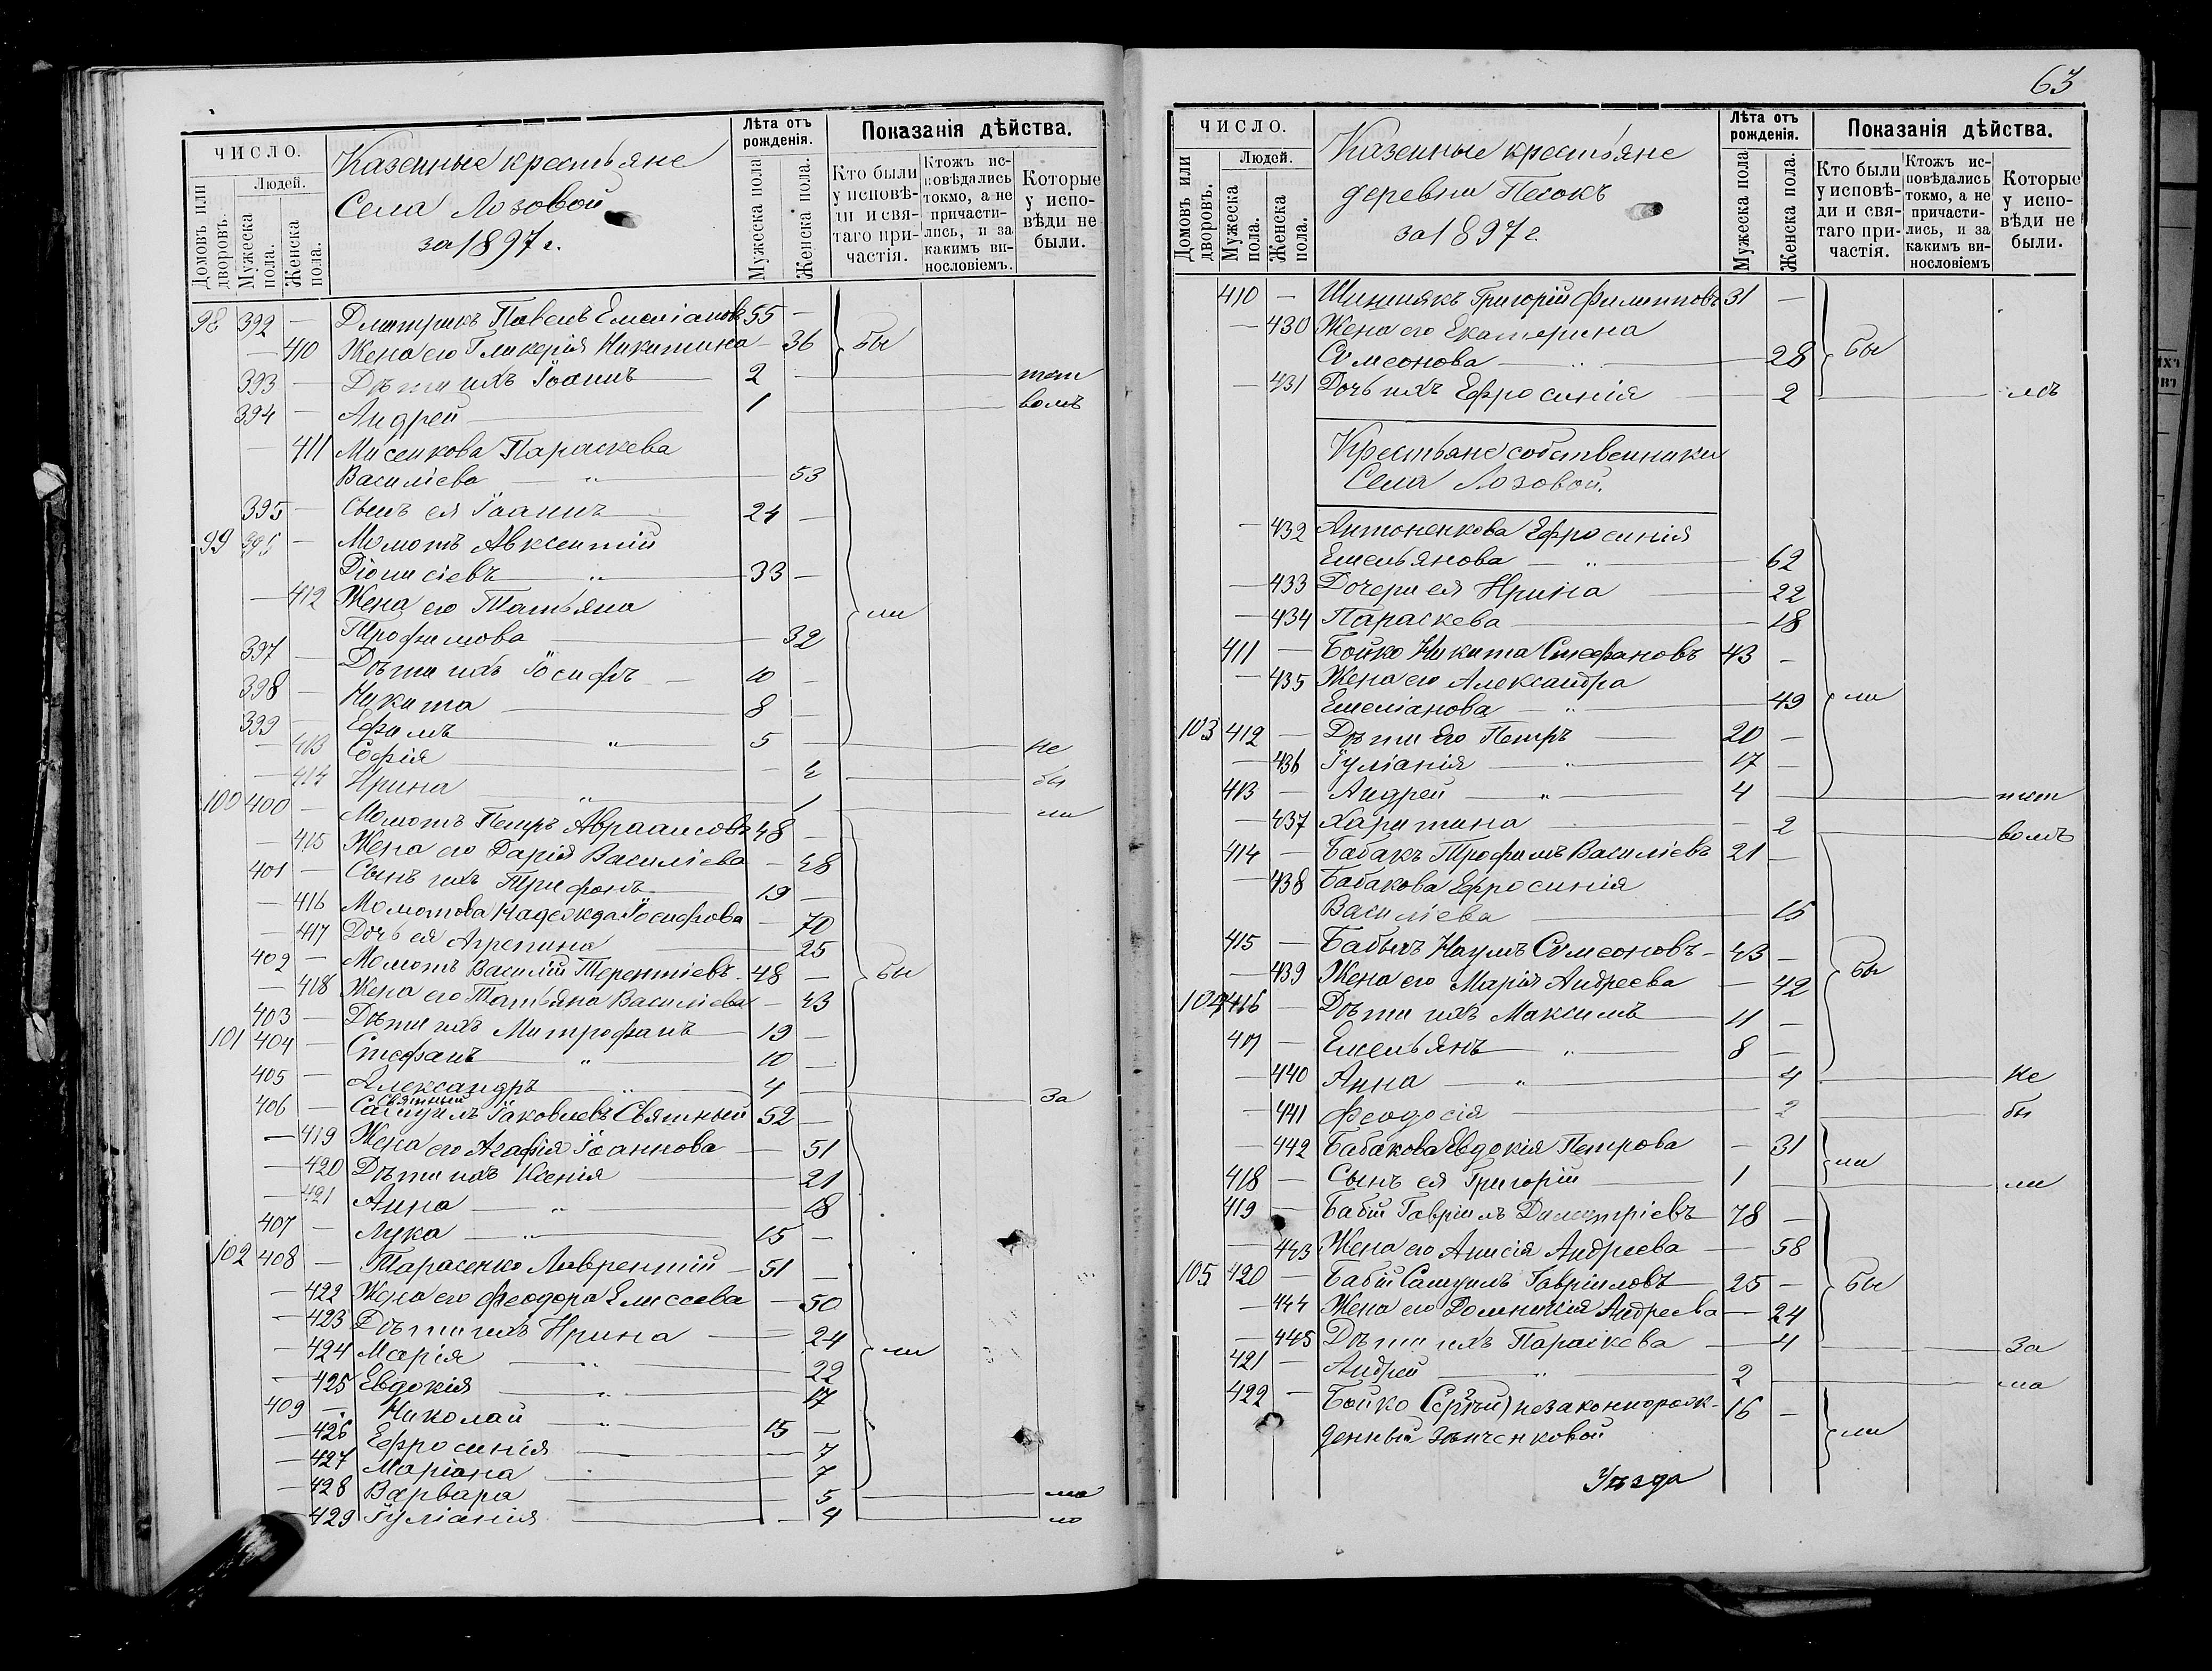 ЧИСЛО.
Домовъ или дворовъ.
Людей.
Мужеска пола.
Женска пола.
Казенные крестьяне
Села Лозовой
за 1897 г.
Лѣта отъ рожденія.
Мужеска пола
Женска пола.
Показанія дѣйства.
Кто были у исповѣди и святаго причастія.
Ктожъ исповѣдались токмо, а не причастились, и за какимъ винословіемъ.
Которые у исповѣди не были.
98 392 — Павелъ Емеліановъ 55 —
— 410 Жена его Гликерія Никитина — 36 бы
393 — Дѣти ихъ Іоаннъ 2
394 — Андрей 1
— 411 Параскева
Василіева — 53
395 — Сынъ ея Іоаннъ 24 —
99 — Момотъ Авксентій
Діонисіевъ 33 —
— 412 Жена его Татьяна ли
Трофимова — 32
397 — Дѣти ихъ Іосифъ 10 —
398 — Никита 8 —
399 — Ефимъ 5 —
— 413 Софія — не
— 414 Ирина — 1 бы
100 400 — Момотъ Петръ Авраамовъ 48 — ли
— 415 Жена его Дарія Василіева — 48
401 — Сынъ ихъ Трифонъ 19 —
— 416 Момотова Надежда Іосифова — 70
— 417 Дочь ея Агрепина 25
402 — Момотъ Василій Терентіевъ 48 — бы
— 418 Жена его Татьяна Василіева — 43
403 — Дѣти ихъ Митрофанъ 19 —
101 404 — Стефанъ 10 —
405 — Александръ 4 — За
Святный
406 — Самуилъ Іаковлевъ Святный 52 —
— 419 Жена его Агафія Іоаннова — 51
— 420 Дѣти ихъ Ксенія 21
— 421 Анна — 18
407 — Лука 15 —
102 408 — Тарасенко Лаврентій 51 —
— 422 Жена его Феодора Елисеева — 50
— 423 Дѣти ихъ Ирина 24
— 424 Марія 22 ли
— 425 Евдокія 17
409 — Николай 15 —
— 426 Ефросинія 7
— 427 Маріана 7
— 428 Варвара 5
— 429 Іуліанія — 4
63
ЧИСЛО.
Домовъ или дворовъ.
Людей.
Мужеска пола.
Женска пола.
Казенные крестьяне
деревни Песокъ
за 1897 г.
Лѣта отъ рожденія.
Мужеска пола
Женска пола.
Показанія дѣйства.
Кто были у исповѣди и святаго причастія.
Ктожъ исповѣдались токмо, а не причастились, и за какимъ винословіемъ
Которые у исповѣди не были.
410 — Григорій Филипповъ 31 —
— 430 Жена его Екатерина
Сѵмеонова 28 бы
— 431 Дочь ихъ Ефросинія — 2
Крестьяне собственники
Села Лозовой.
— 432 Антоненкова Ефросинія
Емельянова 62
— 433 Дочери ея Ирина 22
— 434 Параскева — 18
411 — Бойко Никита Стефановъ 43 —
— 435 Жена его Александра
Емеліанова 49 ли
103 412 — Дѣти его Петръ 20 —
— 436 Іуліанія 17 —
413 — Андрей 4
— 437 Харитина — 2
414 — Бабакъ Трофимъ Василіевъ 21 —
— 438 Бабакова Ефросинія
Василіева — 15
415 — Наумъ Сѵмеоновъ 43 —
— 439 Жена его Марія Андреева — 42 бы
104 416 — Дѣти ихъ Максимъ 11 —
417 — Емельянъ 8 —
— 440 Анна 4 не
— 441 Феодосія 2 бы
— 442 Бабакова Евдокія Петрова — 31 ли
418 — Сынъ ея Григорій 1 ли
419 — Бабій Гавріилъ Димитріевъ 78 —
— 443 Жена его Анисія Андреева — 58
105 420 — Бабій Самуилъ Гавріиловъ 25 — бы
— 444 Жена его Домникія Андреева — 24
— 445 Дѣти ихъ Параскева — 4 За
421 — Андрей 2
422 — Бойко (Сергѣй) незаконнорож- 16 —
денный ли
Уѣзда